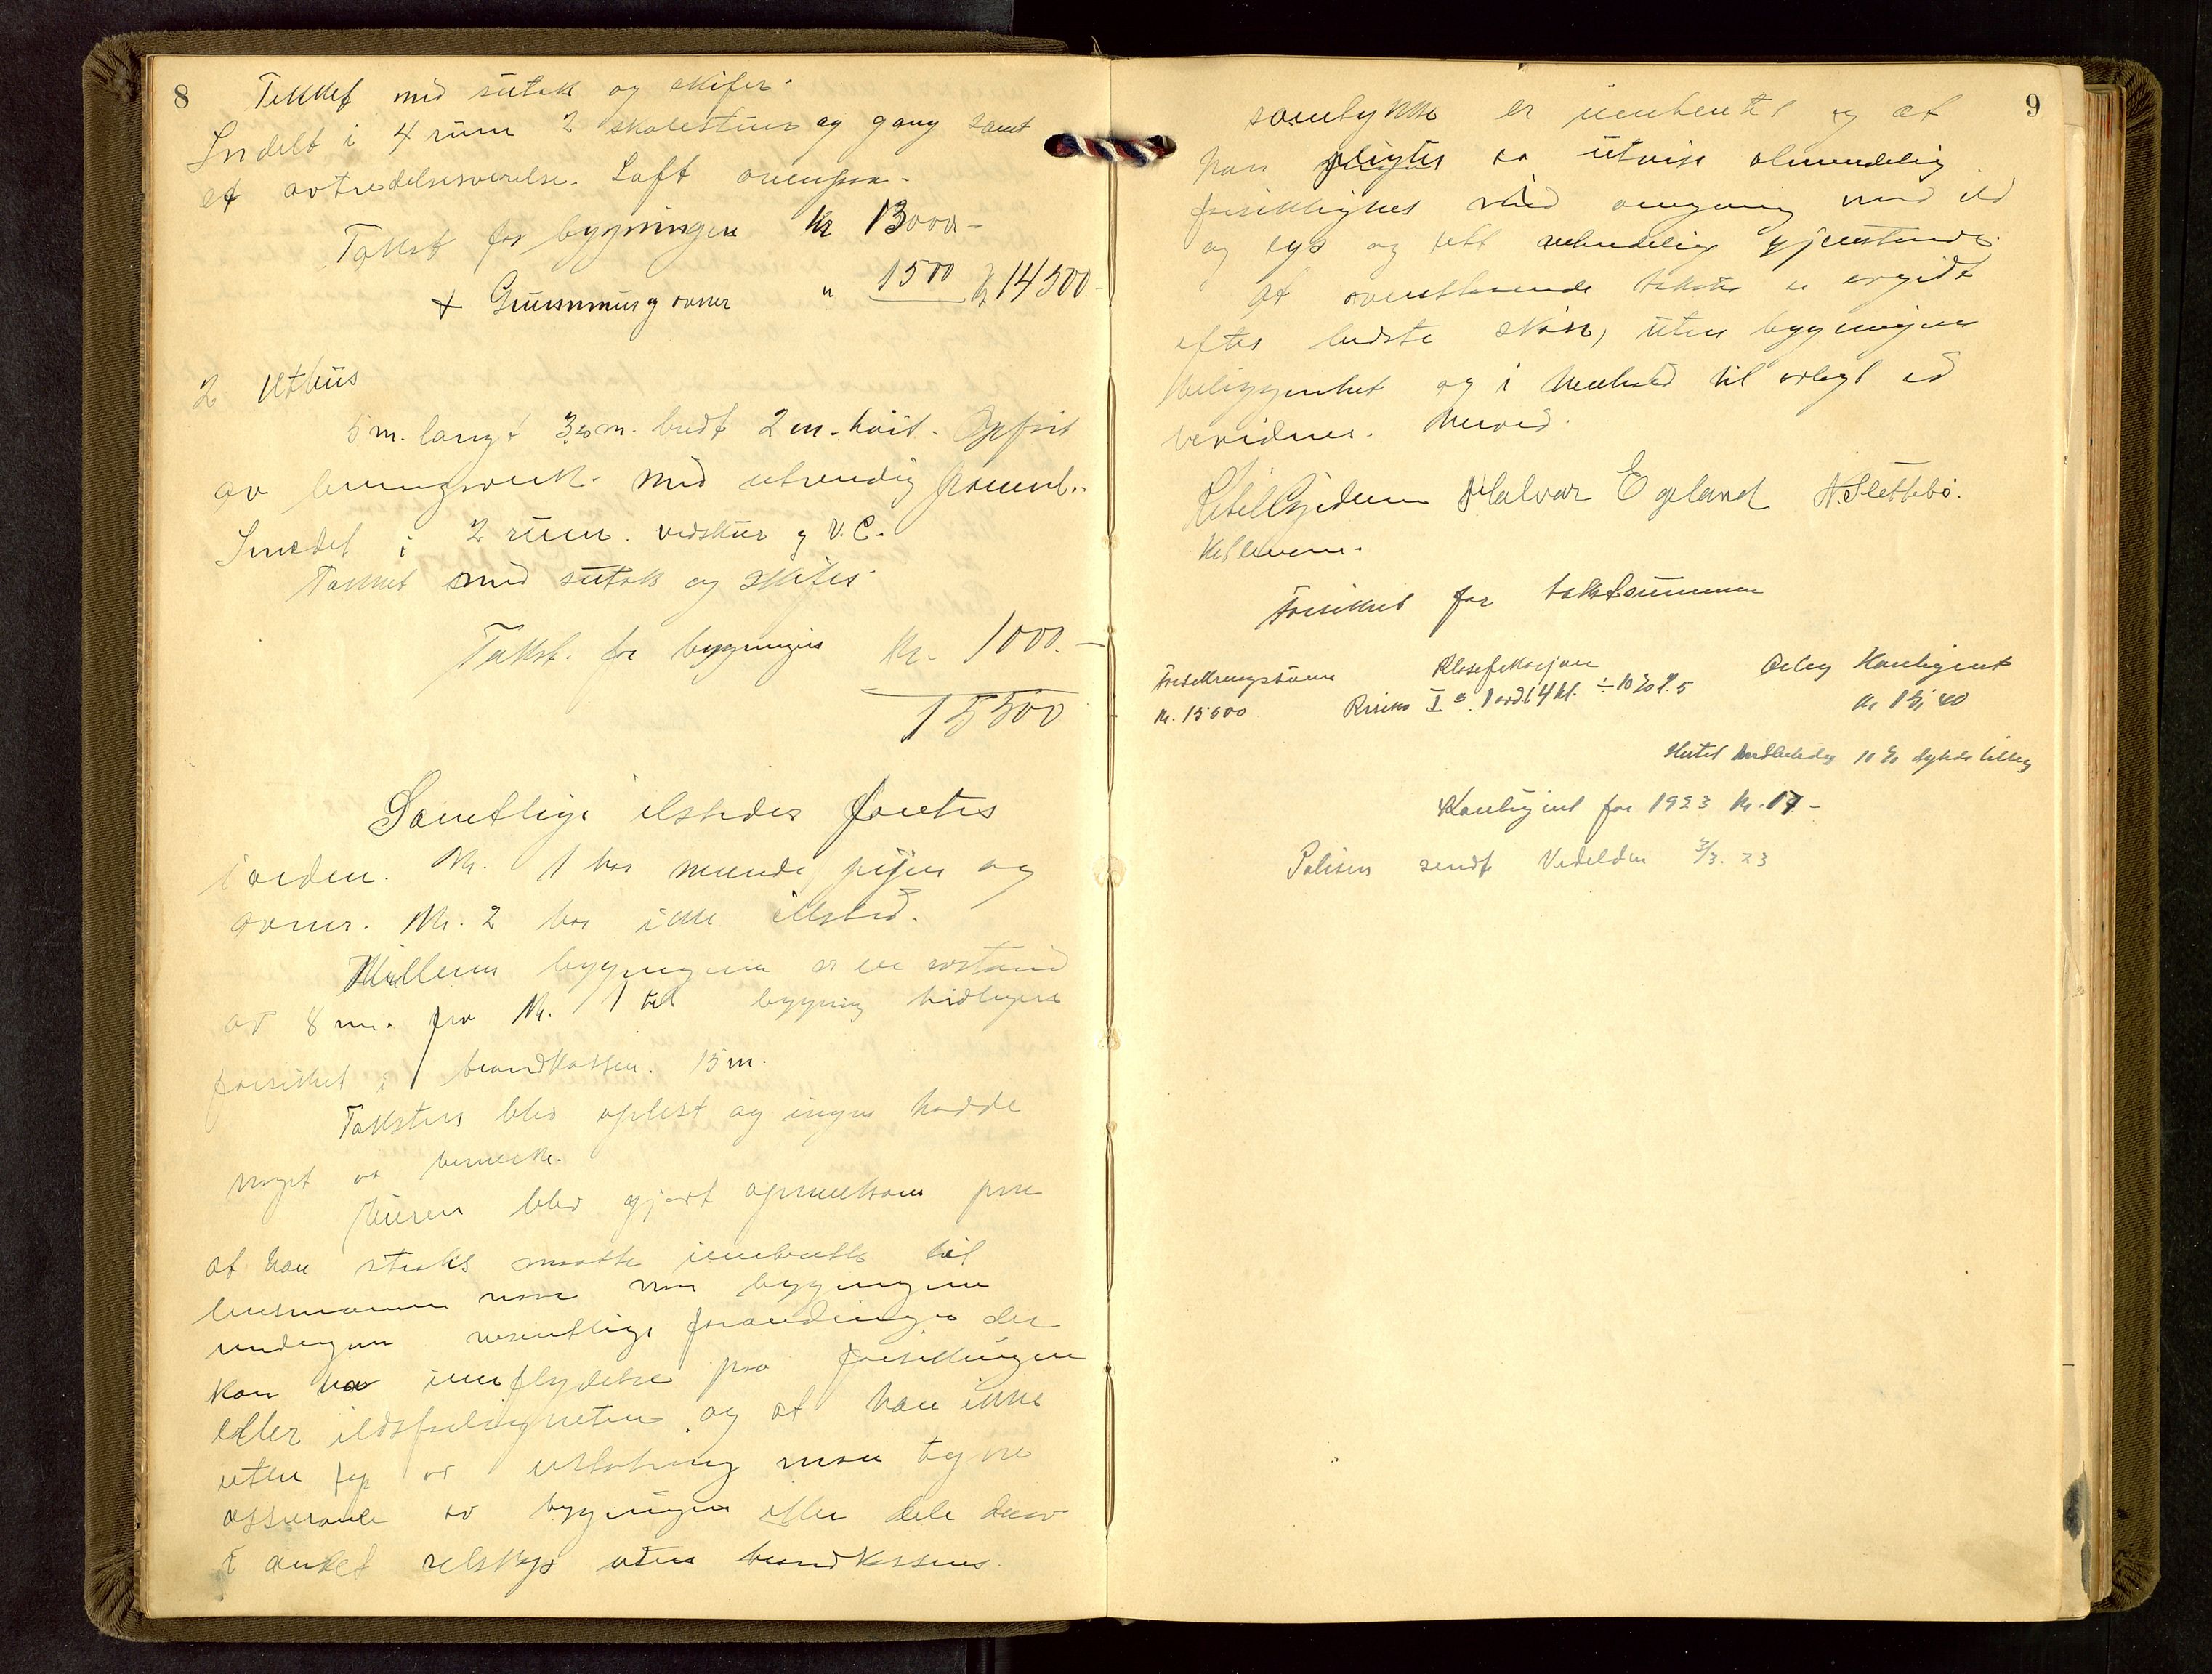 8
Tekket med sutak og skifer.
Indelt i 4 rum 2 skolestuer og gang samt
et avtredelsesværelse. Loft ovenpaa.
Takst for bygningen kr 13000 -
+ Grunnmur og ovner " 1500 kr 14500.-
2 Uthus
5 m. langt 3,20 m. bredt 2 m. høit. Opført
av bindingsverk. med utvendig panel.
Inredet i 2 rum. vedskur og V.C.
Tækket med sutak og skifer.
Takst. for bygningen kr. 1000.-
15500
Samtlige ilsteder fantes
i orden. Nr. 1 har murede piper og
ovner. Nr. 2 har ikke ildsted.
Mellem bygningene er en avstand
av 8 m. fra Nr. 1 til bygning tidligere
forsikret i brandkassen. 15 m.
Taksten blev oplest og ingen hadde
noget at bemerke.
Eieren blev gjort opmerksom paa
at han straks maatte innberette til
lensmannen naar bygningene
undergaar vesentlige forandringer der
kan ha innflydelse paa forsikringen
eller ildsfarligheten og at han ikke
uten tap av erstatning maa tegne
assurance av bygningen eller dele derav
i anket selskap uten brandkassens
9
samtykke er innhentet og at
han pligter at utvise almindelig
forsiktighet med omgang med ild
og lys og lett antendelige gjenstande.
At ovenstaaende takster er avgidt
efter bedste skjøn, uten bygningens
beliggenhet og i henhold til avlagt ed
bevidnes. herved.
Ketil Gjedrem Halvar Egeland N. Slettebø.
Forsikret for takstsummen
Forsikringssum Klasefikasjon Årleg Kontingent
Kr. 15500 Risiko I a. 1 ord. 4 kl. ÷ 10 % P. 5 kr 15,40
10 %
Kontingent for 1923 kr. 17 -
Polisen sendt Vedeldun 3/3. 23